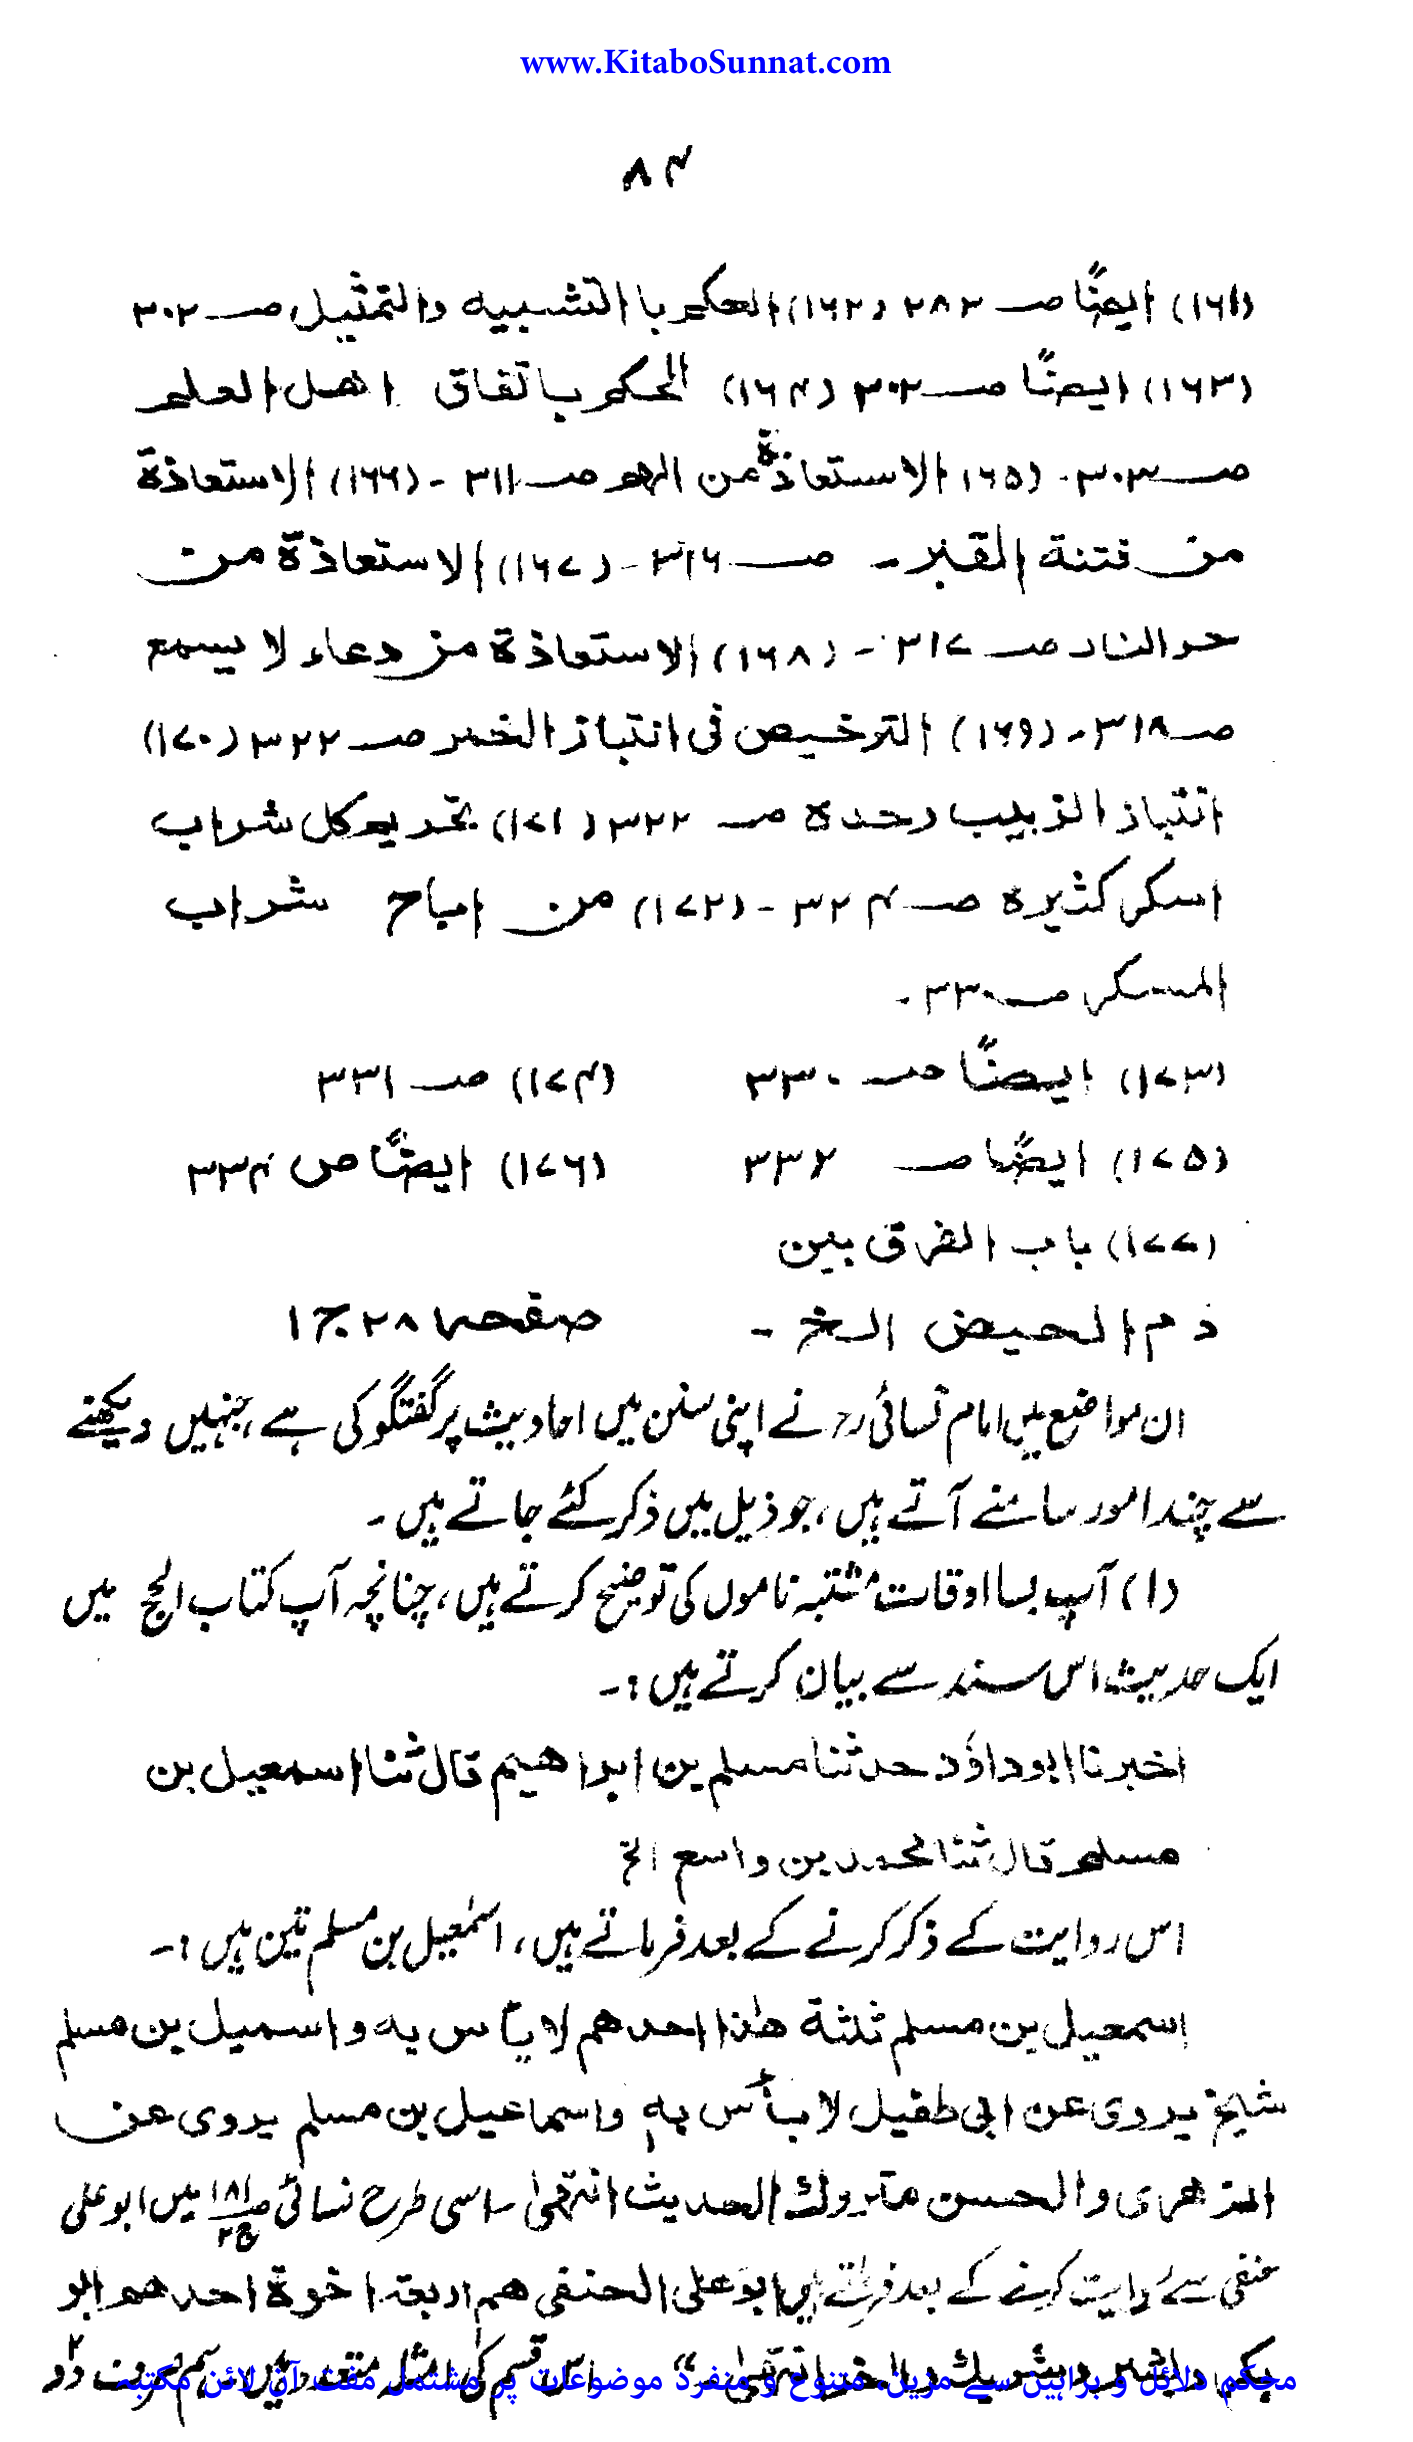 www.KitaboSunnat.com
۸۴
(۱۶۱) ایضًا صـ ۲۸۳ (۱۶۲) الحکم با التشبیه والتمثیل صـ ۳۰۲
(۱۶۳) ایضًا صـ ۳۰۲ (۱۶۴) الحکم باتفاق اهل العلم
صـ ۳۰۳ - (۱۶۵ الاستعاذة من الهم صـ ۳۱۱ - (۱۶۶) الاستعاذة
من فتنة القبر - صـ ۳۱۶ - (۱۶۷) الاستعاذة من
حر النار صـ ۳۱۷ - (۱۶۸) الاستعاذة من دعاء لا یسمع
صـ ۳۱۸ - (۱۶۹) الترخیص فی انتباز الخمر صـ ۳۲۲ (۱۷۰)
انتباز الزبیب وحده صـ ۳۲۲ (۱۷۱) تحریم کل شراب
اسکر کثیره صـ ۳۲۴ - (۱۷۲) من اباح شراب
المسکر صـ ۳۳۰ -
(۱۷۳) ایضًا صـ ۳۳۰ (۱۷۴) صـ ۳۳۱
(۱۷۵) ایضًا صـ ۳۳۲ (۱۷۶) ایضًا ص ۳۳۴
(۱۷۷) باب الفرق بین
دم الحیض الخ - صفحہ ۲۸ ج ۱
ان مواضع میں امام نسائی رح نے اپنی سنن میں احادیث پر گفتگو کی ہے، جنہیں دیکھنے
سے چند امور سامنے آتے ہیں، جو ذیل میں ذکر کئے جاتے ہیں ۔
(۱) آپ بسا اوقات مشتبہ ناموں کی توضیح کرتے ہیں، چنانچہ آپ کتاب الحج میں
ایک حدیث اس سند سے بیان کرتے ہیں :۔
اخبرنا ابو داؤد حدثنا مسلم بن ابراهیم قال ثنا اسمعیل بن
مسلم قال ثنا محمد بن واسع الخ
اس روایت کے ذکر کرنے کے بعد فرماتے ہیں، اسمٰعیل بن مسلم تین ہیں :۔
اسمعیل بن مسلم ثلثة هٰذا احدهم لا بأس به و اسمیل بن مسلم
شیخ یروی عن ابی طفیل لا بأس به واسماعیل بن مسلم یروی عن
الزهری والحسن متروك الحدیث انتهیٰ ۔ اسی طرح نسائی صـ ۱۸۱ ج ۲ میں ابو علی
حنفی سے روایت کرنے کے بعد فرماتے ہیں ابو علی الحنفی هم اربعة اخوة احدهم ابو
بکر وبشر وشریك والاخر انتهیٰ۔" اس قسم کی امثلہ متعدد ہیں۔ ہم صرف دو
محکم دلائل و براہین سے مزین متنوع و منفرد موضوعات پر مشتمل مفت آن لائن مکتبہ